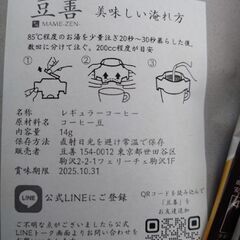 豆善 美味しい淹れ方
MAME-ZEN
85℃程度のお湯を少量注ぎ20秒〜30秒蒸らした後、
数回に分けて注ぐ。200cc程度が目安
名称 レギュラーコーヒー
原材料名 コーヒー豆
内容量 14g
保存方法 直射日光を避け常温で保存
販売者 豆善 154-0012 東京都世田谷区
駒沢2-2-1フェリーチェ駒沢1F
賞味期限 2025.10.31
LINE 公式LINEにご登録
QRコードを読み込んで
「豆善」を
お友達追加
ご不明な点がございましたら公式
LINEトーク画面よりお問い合わせ